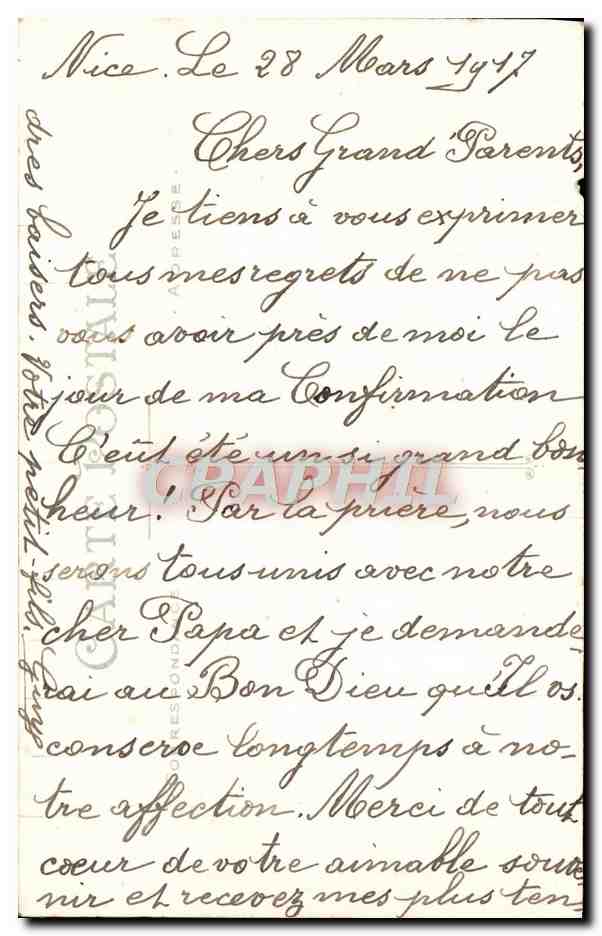 Nice. Le 28 Mars 1917
Chers Grand Parents,
Je tiens à vous exprimer
tous mes regrets de ne pas
vous avoir près de moi le
jour de ma Confirmation
C'eût été un si grand bon-
heur! Par la prière, nous
serons tous unis avec notre
cher Papa et je demande-
rai au Bon Dieu qu'Il vs.
conserve longtemps à no-
tre affection. Merci de tout
cœur de votre aimable souve-
nir et recevez mes plus ten-
dres baisers. Votre petit-fils. Guy
CARTE POSTALE
CORRESPONDANCE
ADRESSE
CPAPHIL